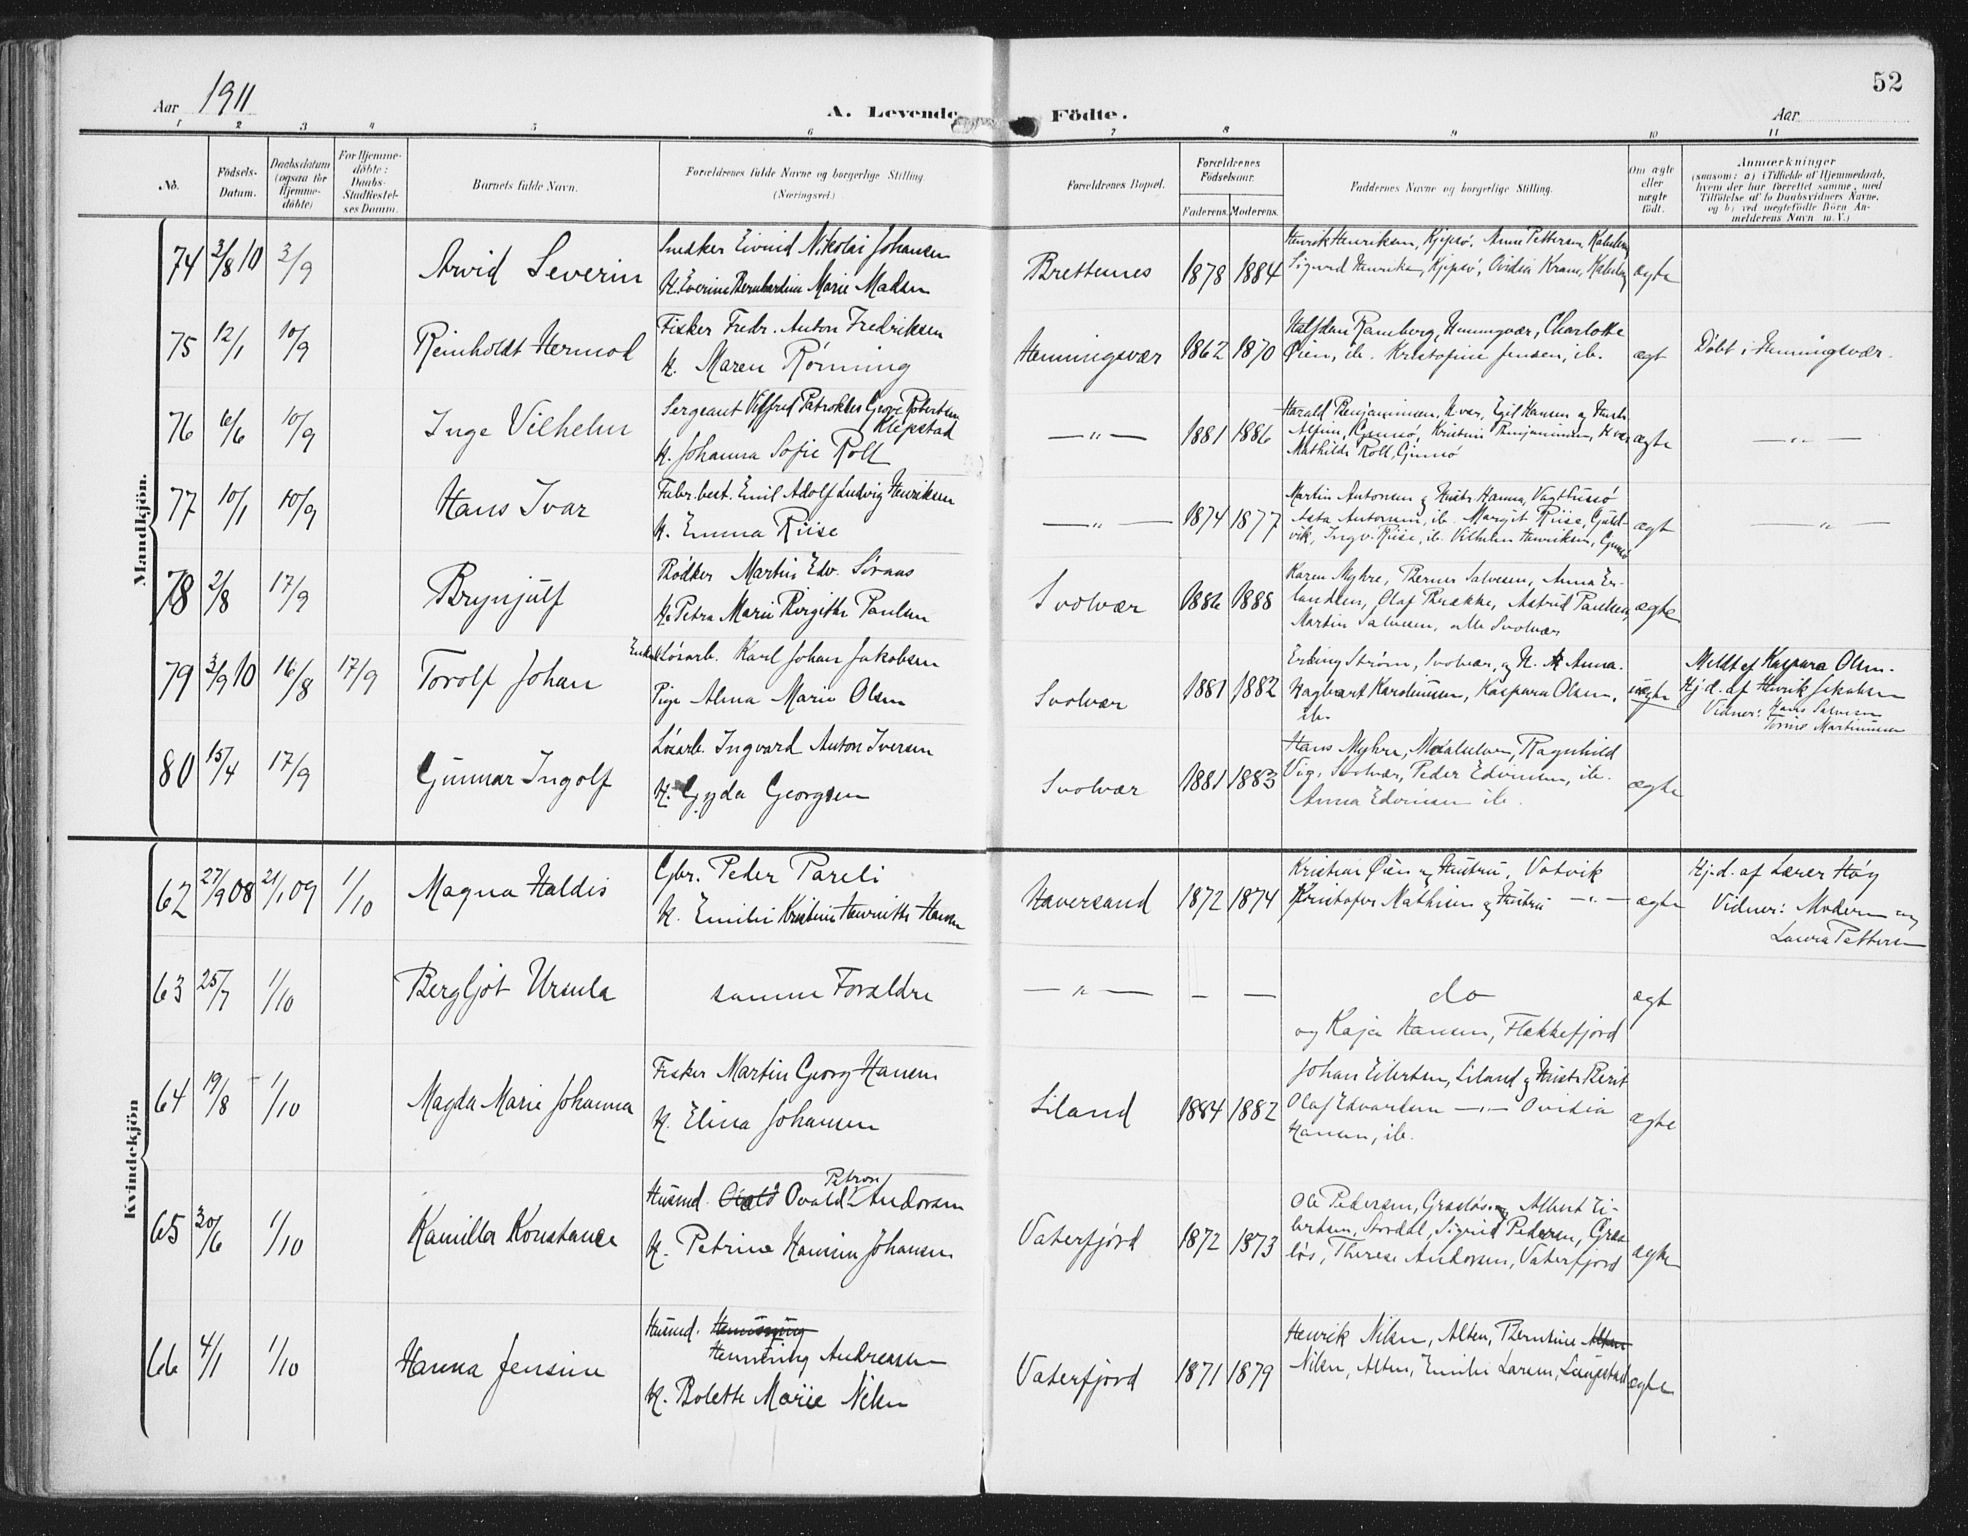 52
Aar 1911
A. Levende Födte.
Aar
1 2 3 4 5 6 7 8 9 10 11
No.
Födsels-Datum.
Daabsdatum (ogsaa for Hjemme-döbte)
For Hjemme-döbte: Daabs-Stadfæstel-ses Datum.
Barnets fulde Navn.
Forældrenes fulde Navne og borgerlige Stilling (Næringsvei.)
Forældrenes Bopæl.
Forældrenes Födselsaar.
Faderens. Moderens.
Faddernes Navne og borgerlige Stilling.
Om ægte eller uægte födt.
Anmærkninger
(saasom: a) i Tilfælde af Hjemmedaab,
hvem der har forrettet samme, med
Tilföielse af to Daabsvidners Navne,
og b) ved uægtefödte Börn An-
melderens Navn m.V.)
Mandkjön.
74 3/8 10 3/9 Arvid Severin
Snedker Eivind Nikolai Johansen
H. Everine Bernhardine Marie Madsen
Brettesnes 1878 1884
Henrik Henriksen, Kjepsö, Anne Pettersen, Kalsholmen
Sigurd Henriksen, Kjepsö, Ovidia Kram, Kalholmen
ægte
75 12/1 10/9 Reinholdt Hermod
Fisker Fredr. Anton Fredriksen
H. Maren Rønning
Henningsvær 1862 1870
Halfdan Ramberg, Henningvær, Charlotte
Øien, ib. Kristofine Jensen, ib.
ægt
Döbt i Henningsvær.
76 6/6 10/9 Inge Vilhelm
Sergeant Vilfred Patrokles Grove Robertsen
Klepstad
H. Johanna Sofie Roll
— " — 1881 1886
Harald Benjaminsen, H.vær, Egil Hansen og Hustr.
Alfine, Gimsö, Kristine Benjaminsen, H.vær
Mathilde Roll, Gimsö
ægte
— " —
77 10/1 10/9 Hans Ivar
Fabr.best. Emil Adolf Ludvig Henriksen
H. Emma Riise
— " — 1874 1877
Martin Antonsen og Hustr. Hanna,
Asta Antonsen, ib. Margit Riise,
vik, Ingv. Riise, ib. Vilhelm Henriksen, Gimsö
ægt
— " —
78 2/8 17/9 Brynjulf
Bödker Martin Edv. Sivaas
H. Petra Marie Birgitte Paulsen
Svolvær 1886 1888
Karen Myhre, Berner Salvesen, Anna Er-
landsen, Olaf Brække, Astrid Paulsen,
Martin Salvesen, alle Svolvær
ægte
79 3/9 10 16/8 17/9 Torolf Johan
Enkem. Lösarb. Karl Johan Jakobsen
Pige Alma Marie Olsen
Svolvær 1881 1882
Erling Strøm, Svolvær, og H. Anna.
Hagbart Karoliussen, Kaspara Olsen,
ib.
uægte
Meldt af Kaspara Olsen.
Hj.d. af Henrik Jakobsen
Vidner: Hans Salvesen
Tomine Martinussen
80 15/4 17/9 Gunnar Ingolf
Lösarb. Ingvard Anton Iversen
H. Gyda Georgsen
Svolvær 1881 1883
Hans Myhre, Ragnhild
Vig, Svolvær, Peder Edvinsen, ib.
Anna Edvinsen ib.
ægte
Kvindekjön
62 27/9 08 21/1 09 1/10 Magna Haldis
Gbr. Peder Pareli
H. Emilie Kristine Henriette Hansen
Haversand 1872 1874
Kristian Øien og Hustru, Votvik
Kristofer Mathisen og Hustru — " —
ægte
Hj.d. af Lærer Høy
Vidner: Moderen og
Laura Pettersen
63 25/7 1/10 Bergljot Ursula
samme Forældre
— " — — —
do
og Kaja Hansen, Flekkefjord
ægt
64 19/8 1/10 Magda Marie Johanna
Fisker Martin Georg Hansen
H. Elina Johansen
Liland 1884 1882
Johan Eilertsen, Liland og Hustr. Berit
Olaf Edvardsen — " — Ovidia
Hansen, ib.
ægte
65 30/6 1/10 Kamilla Konstance
Petron
Husmd. Ovald Andorsen
H. Petrine Hansine Johansen
Vaterfjord 1872 1873
Ole Pedersen, Græsløs og Albert Ei-
lertsen, Stordal, Sigrid Pedersen, Græs-
løs, Therese Andorsen, Vaterfjord
ægte
66 4/1 1/10 Hanna Jensine
Husmd. Henning
Henning Andreassen
H. Bolette Marie Nilsen
Vaterfjord 1871 1879
Henrik Nilsen, Alten, Berntine Alten
Nilsen, Alten, Emilie Larsen, Laupstad
ægte